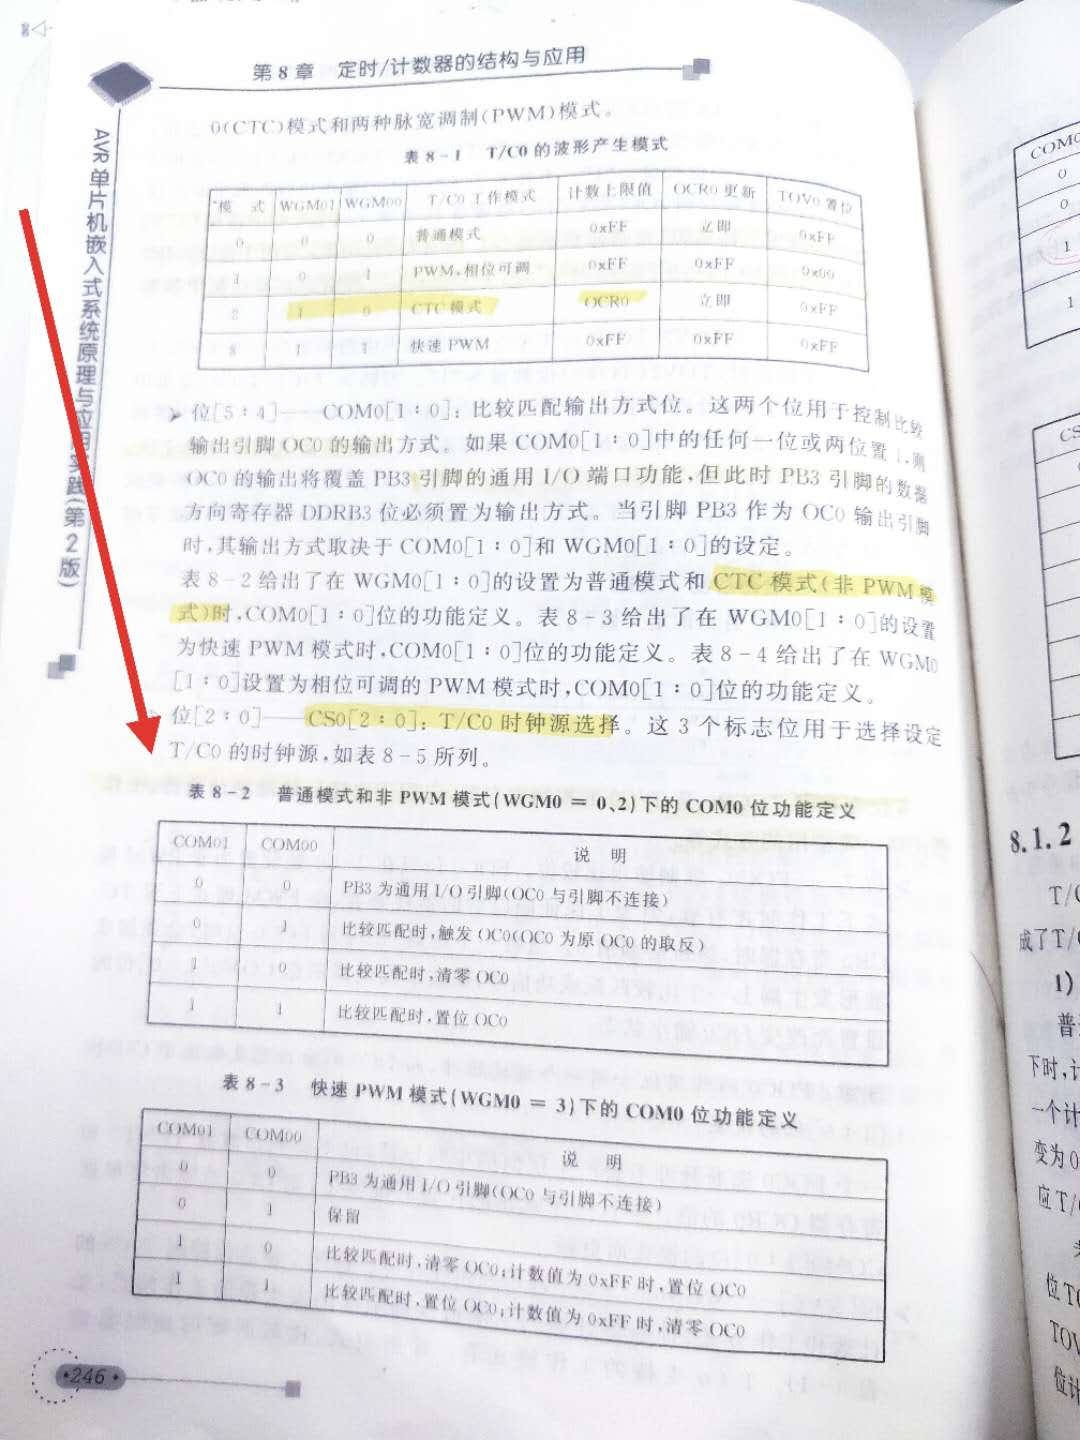 第8章 定时/计数器的结构与应用
AVR单片机嵌入式系统原理与应用实践(第2版)
0(CTC)模式和两种脉宽调制(PWM)模式。
表8-1 T/C0的波形产生模式
模 式 WGM01 WGM00 T/C0工作模式 计数上限值 OCR0更新 TOV0置位
0 0 0 普通模式 0xFF 立即 0xFF
1 0 1 PWM,相位可调 0xFF 0xFF 0x00
2 1 0 CTC模式 OCR0 立即 0xFF
3 1 1 快速PWM 0xFF 0xFF 0xFF
➢ 位[5:4]——COM0[1:0]:比较匹配输出方式位。这两个位用于控制比较
输出引脚OC0的输出方式。如果COM0[1:0]中的任何一位或两位置1,则
OC0的输出将覆盖PB3引脚的通用I/O端口功能,但此时PB3引脚的数据
方向寄存器DDRB3位必须置为输出方式。当引脚PB3作为OC0输出引脚
时,其输出方式取决于COM0[1:0]和WGM0[1:0]的设定。
表8-2给出了在WGM0[1:0]的设置为普通模式和CTC模式(非PWM模
式)时,COM0[1:0]位的功能定义。表8-3给出了在WGM0[1:0]的设置
为快速PWM模式时,COM0[1:0]位的功能定义。表8-4给出了在WGM0
[1:0]设置为相位可调的PWM模式时,COM0[1:0]位的功能定义。
位[2:0]——CS0[2:0]:T/C0时钟源选择。这3个标志位用于选择设定
T/C0的时钟源,如表8-5所列。
表8-2 普通模式和非PWM模式(WGM0 = 0、2)下的COM0位功能定义
COM01 COM00 说 明
0 0 PB3为通用I/O引脚(OC0与引脚不连接)
0 1 比较匹配时,触发OC0(OC0为原OC0的取反)
1 0 比较匹配时,清零OC0
1 1 比较匹配时,置位OC0
表8-3 快速PWM模式(WGM0 = 3)下的COM0位功能定义
COM01 COM00 说 明
0 0 PB3为通用I/O引脚(OC0与引脚不连接)
0 1 保留
1 0 比较匹配时,清零OC0;计数值为0xFF时,置位OC0
1 1 比较匹配时,置位OC0;计数值为0xFF时,清零OC0
·246·
COM0
0
0
1
1
CS
8.1.2
T/C
成了T/
1)
普
下时,计
一个计
变为0
应T/
位TO
TOV
位计